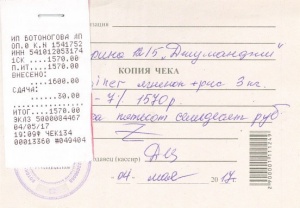 ИП БОТОНОГОВА ЛП
ОП.0 К.Н 1541752
ИНН 541012053174
1СК ....1570.00
П.ИТ....1570.00
ВНЕСЕНО:
....1600.00
СДАЧА:
....30.00
ИТОГ....1570.00
ЭКЛЗ 5000004467
04/05/17
19:09Ф ЧЕК134
00013360 #049404
изация)
15 „Джуманджи"
КОПИЯ ЧЕКА
лимон + рис 3 кг.
7/ 1570 р
пятьсот семьдесят руб
(кассир)
"04" мая 2017г.